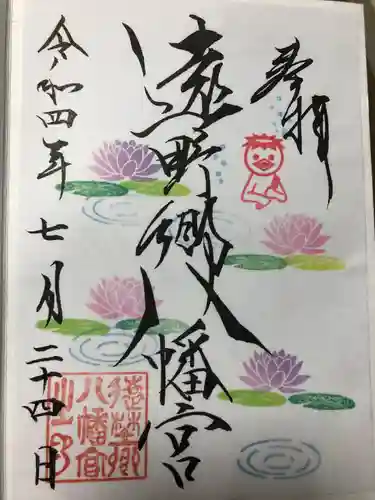 奉拝
遠野郷八幡宮
令和四年七月二十四日
遠野郷
八幡宮